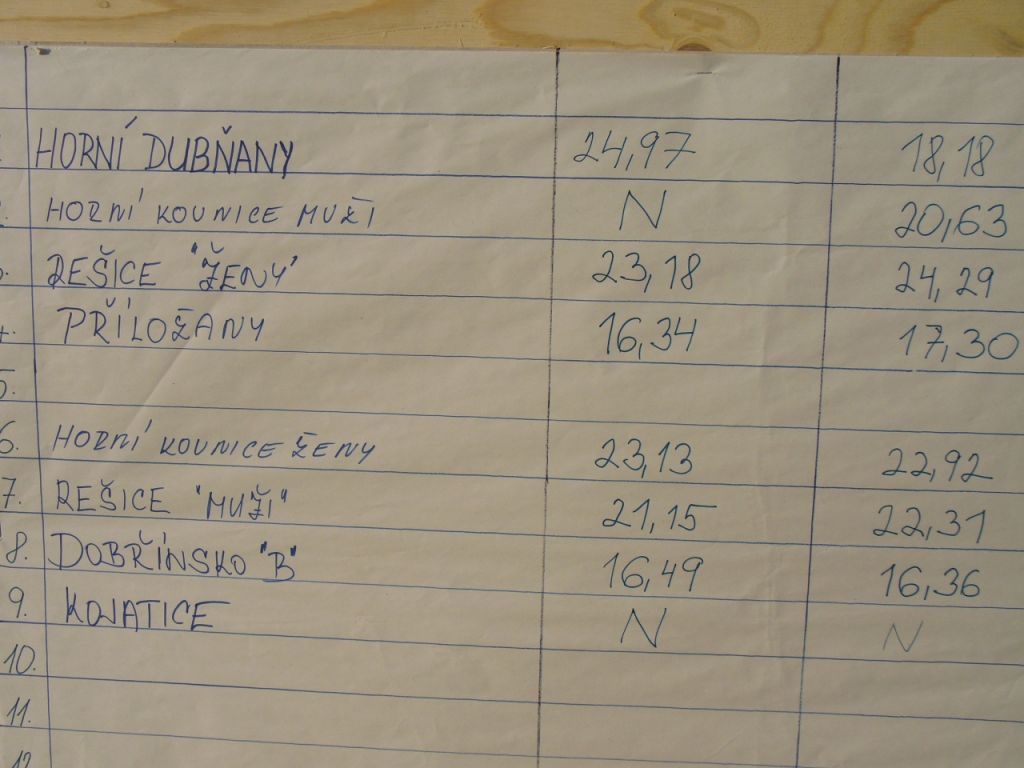 HORNÍ DUBŇANY 24,97 18,18
HORNÍ KOUNICE MUŽI N 20,63
REŠICE "ŽENY" 23,18 24,29
4. PŘÍLOŽANY 16,34 17,30
5.
6. HORNÍ KOUNICE ŽENY 23,13 22,92
7. REŠICE "MUŽI" 21,15 22,31
8. DOBŘÍNSKO "B" 16,49 16,36
9. KOJATICE N N
10.
11.
12.